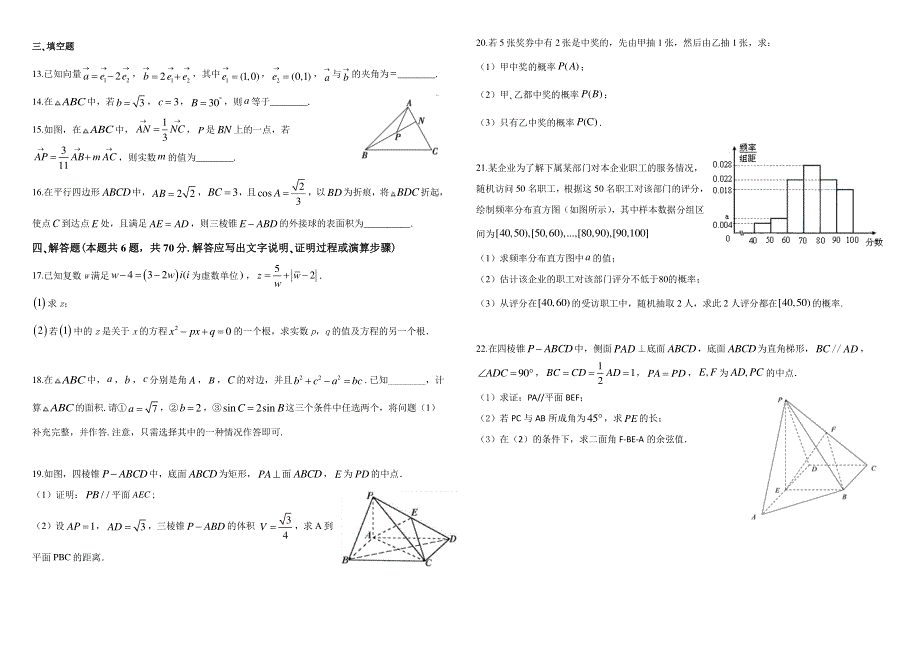 三、填空题
13.已知向量 $\overrightarrow{a}=\overrightarrow{e_1}-2\overrightarrow{e_2}$，$\overrightarrow{b}=2\overrightarrow{e_1}+\overrightarrow{e_2}$，其中 $\overrightarrow{e_1}=(1,0)$，$\overrightarrow{e_2}=(0,1)$，$\overrightarrow{a}$ 与 $\overrightarrow{b}$ 的夹角为=________.
14.在△ABC中，若 $b=\sqrt{3}$，$c=3$，$B=30^\circ$，则 a 等于________.
15.如图，在△ABC中，$\overrightarrow{AN}=\frac{1}{3}\overrightarrow{NC}$，P 是 BN 上的一点，若
$\overrightarrow{AP}=\frac{3}{11}\overrightarrow{AB}+m\overrightarrow{AC}$，则实数 m 的值为________.
A
N
P
B
C
16.在平行四边形 ABCD 中，$AB=2\sqrt{2}$，$BC=3$，且 $\cos A=\frac{\sqrt{2}}{3}$，以 BD 为折痕，将△BDC折起，
使点 C 到达点 E 处，且满足 AE=AD，则三棱锥 E-ABD 的外接球的表面积为__________.
四、解答题(本题共 6 题，共 70 分.解答应写出文字说明、证明过程或演算步骤)
17.已知复数 w 满足 $w-4=(3-2w)i$(i 为虚数单位)，$z=\frac{5}{w}+|\overline{w}-2|$.
(1)求 z;
(2)若(1)中的 z 是关于 x 的方程 $x^2-px+q=0$ 的一个根，求实数 p，q 的值及方程的另一个根．
18.在△ABC中，a，b，c 分别是角 A，B，C 的对边，并且 $b^2+c^2-a^2=bc$．已知________，计
算△ABC的面积.请①$a=\sqrt{7}$，②$b=2$，③$\sin C=2\sin B$ 这三个条件中任选两个，将问题（1）
补充完整，并作答.注意，只需选择其中的一种情况作答即可.
19.如图，四棱锥 P-ABCD 中，底面 ABCD 为矩形，PA⊥面 ABCD，E 为 PD 的中点．
（1）证明：PB//平面 AEC；
（2）设 $AP=1$，$AD=\sqrt{3}$，三棱锥 P-ABD 的体积 $V=\frac{\sqrt{3}}{4}$，求 A 到
平面 PBC 的距离．
P
E
A
D
B
C
20.若 5 张奖券中有 2 张是中奖的，先由甲抽 1 张，然后由乙抽 1 张，求：
（1）甲中奖的概率 P(A)；
（2）甲、乙都中奖的概率 P(B)；
（3）只有乙中奖的概率 P(C)．
21.某企业为了解下属某部门对本企业职工的服务情况，
随机访问 50 名职工，根据这 50 名职工对该部门的评分，
绘制频率分布直方图（如图所示），其中样本数据分组区
间为[40,50),[50,60),...,[80,90),[90,100]
（1）求频率分布直方图中 a 的值；
（2）估计该企业的职工对该部门评分不低于80的概率；
（3）从评分在[40,60)的受访职工中，随机抽取 2 人，求此 2 人评分都在[40,50)的概率.
频率
组距
0.028
0.022
0.018
a
0.004
0 40 50 60 70 80 90 100 分数
22.在四棱锥 P-ABCD 中，侧面 PAD⊥底面 ABCD，底面 ABCD 为直角梯形，BC//AD，
∠ADC=90°，$BC=CD=\frac{1}{2}AD=1$，PA=PD，E,F 为 AD,PC 的中点．
（1）求证：PA//平面 BEF；
（2）若 PC 与 AB 所成角为45°，求 PE 的长；
（3）在（2）的条件下，求二面角 F-BE-A 的余弦值．
P
F
D
C
E
B
A